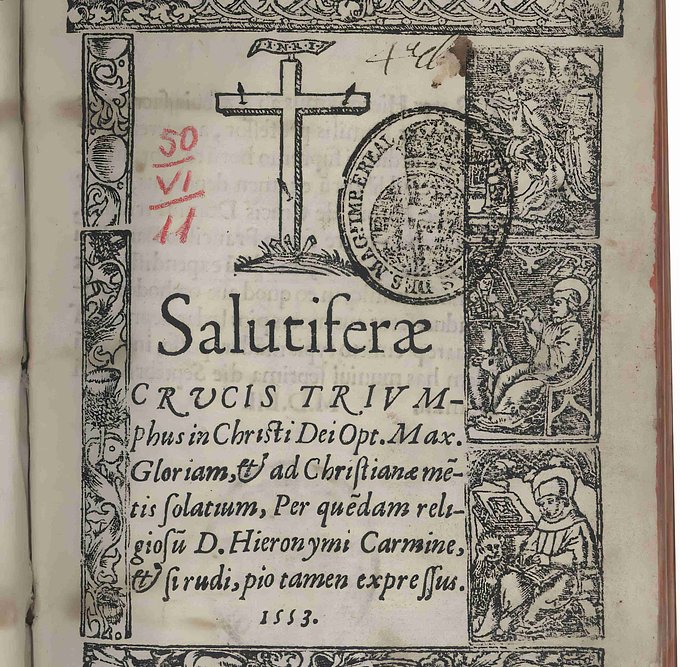 I.N.R.I.
50
VI
11
Salutiferæ
CRVCIS TRIVM-
phus in Christi Dei Opt. Max.
Gloriam, & ad Christianæ mē-
tis solatium, Per quēdam reli-
giosū D. Hieronymi Carmine,
& si rudi, pio tamen expressus.
1553.